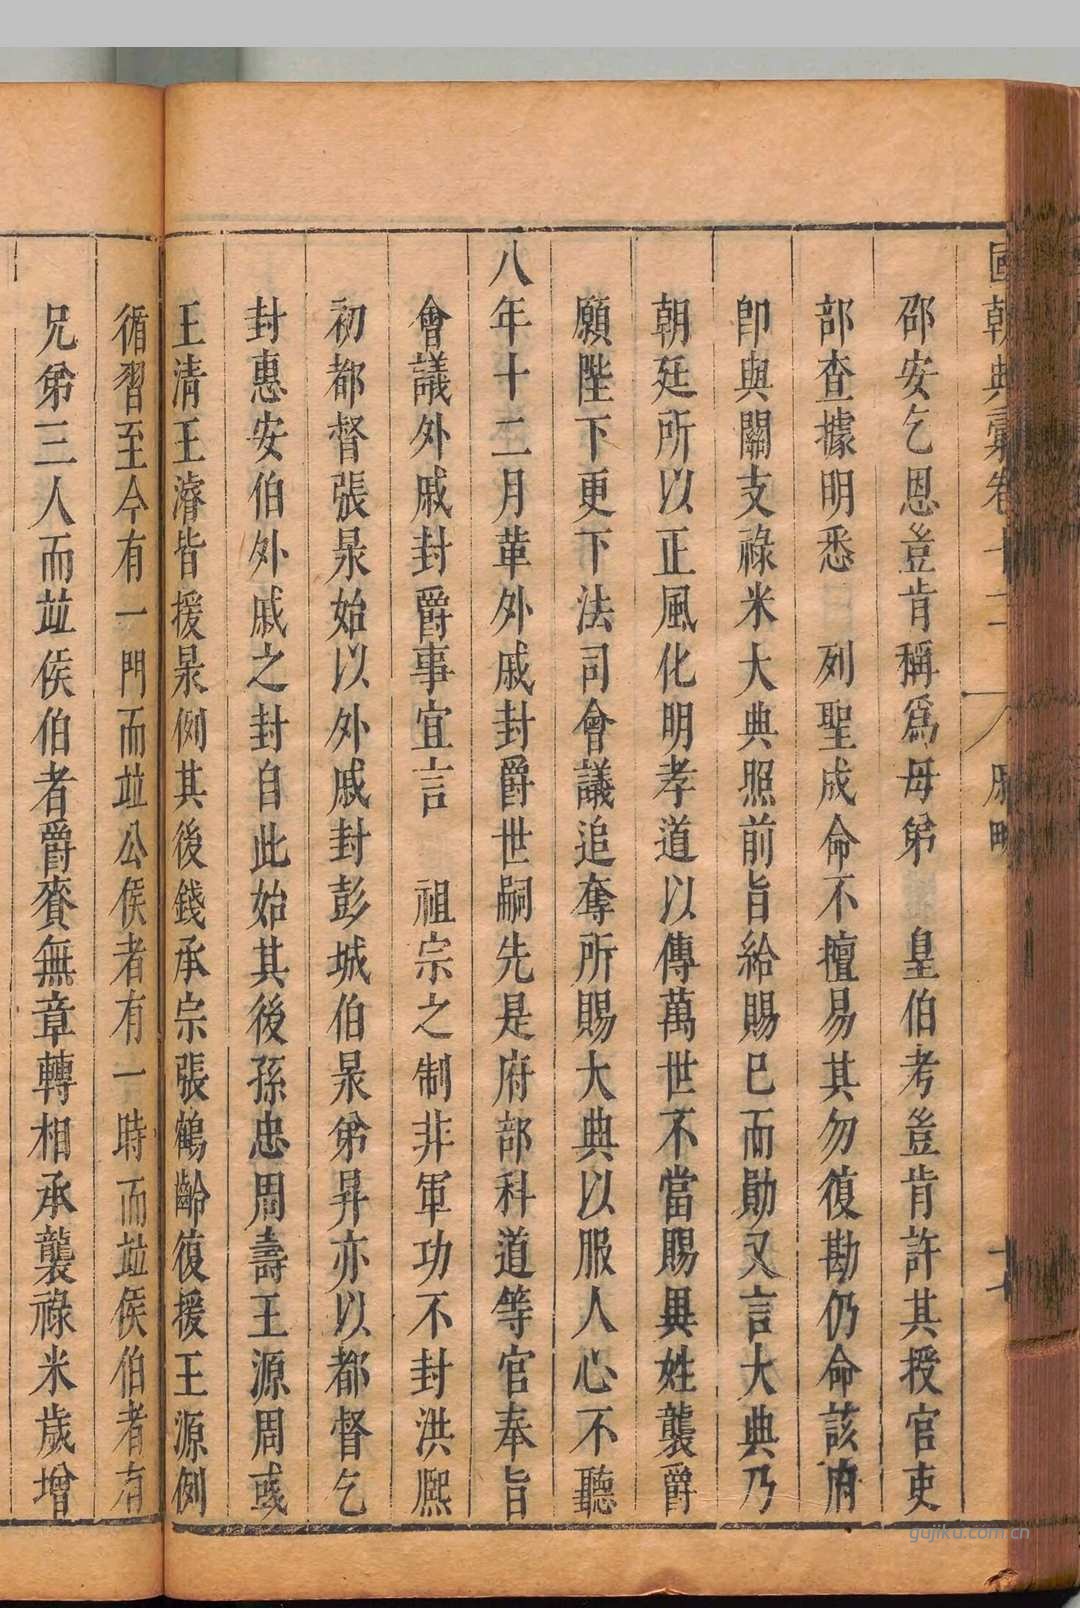 國朝典彙卷十二 戚畹
邵安乞恩豈肯稱爲母弟 皇伯考豈肯許其授官吏
部查據明悉 列聖成命不擅易其勿復勘仍命該府
卽與關支祿米大典照前旨給賜已而勛又言大典乃
朝廷所以正風化明孝道以傳萬世不當賜異姓襲爵
願陛下更下法司會議追奪所賜大典以服人心不聽
八年十二月革外戚封爵世嗣先是府部科道等官奉旨
會議外戚封爵事宜言 祖宗之制非軍功不封洪熈
初都督張杲始以外戚封彭城伯杲弟昇亦以都督乞
封惠安伯外戚之封自此始其後孫忠周壽王源周彧
王清王濬皆援杲例其後錢承宗張鶴齡復援王源例
循習至今有一門而竝公侯者有一時而竝侯伯者有
兄弟三人而竝侯伯者爵賚無章轉相承襲祿米歲增
gujiku.com.cn